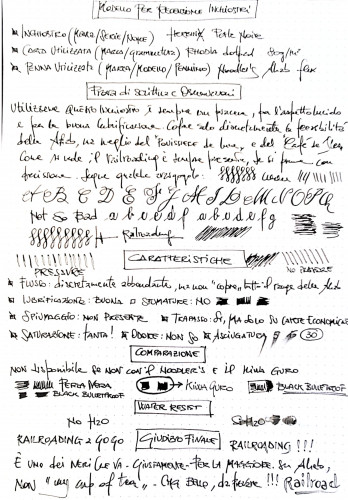 MODELLO PER RECENSIONE INCHIOSTRI
INCHIOSTRO (MARCA/SERIE/NOME) HERBIN Perle Noire
CARTA UTILIZZATA (MARCA/GRAMMATURA) RHODIA dotpad 80g/m²
PENNA UTILIZZATA (MARCA/MODELLO/PENNINO) Noodler's Ahab flex
PROVA di SCRITTURA e OSSERVAZIONI
Utilizzare QUESTO INCHIOSTRO è sempre un piacere, per l'aspetto lucido
e per la buona lubrificazione. Copre discretamente la flessibilità
della Ahab, un meglio del Poussière de Lune, e del Café des Îles
Come si vede il Railroading è sempre presente, se si preme con
precisione. Segue qualche
A B C D E F G H I L M N O P Q
Not So Bad a b c d e f a b c d e f g
Railroading
PRESSURE CARATTERISTICHE NO PRESSURE
FLUSSO: discretamente abbondante, ma non "copre" tutto il range della Ahab
LUBRIFICAZIONE: BUONA SFUMATURE: NO
SPIUMAGGIO: NON PRESENTE TRAPASSO: SÌ, MA SOLO SU CARTE ECONOMICHE
SATURAZIONE: TANTA! ODORE: NON SO ASCIUGATURA 30"
COMPARAZIONE
NON DISPONIBILE SE NON CON IL NOODLER'S E IL KIWA GURO
PERLA NERA KIWA GURO BLACK BULLETPROOF
BLACK BULLETPROOF
WATER RESIST
NO H2O H2O
RAILROADING A GOGO GIUDIZIO FINALE RAILROADING!!!
È UNO dei NERI CHE VA - GIUSTAMENTE - PER LA MAGGIORE. Su Ahab,
NON "my cup of tea" - CHE BELLO, da flex!!! Railroad